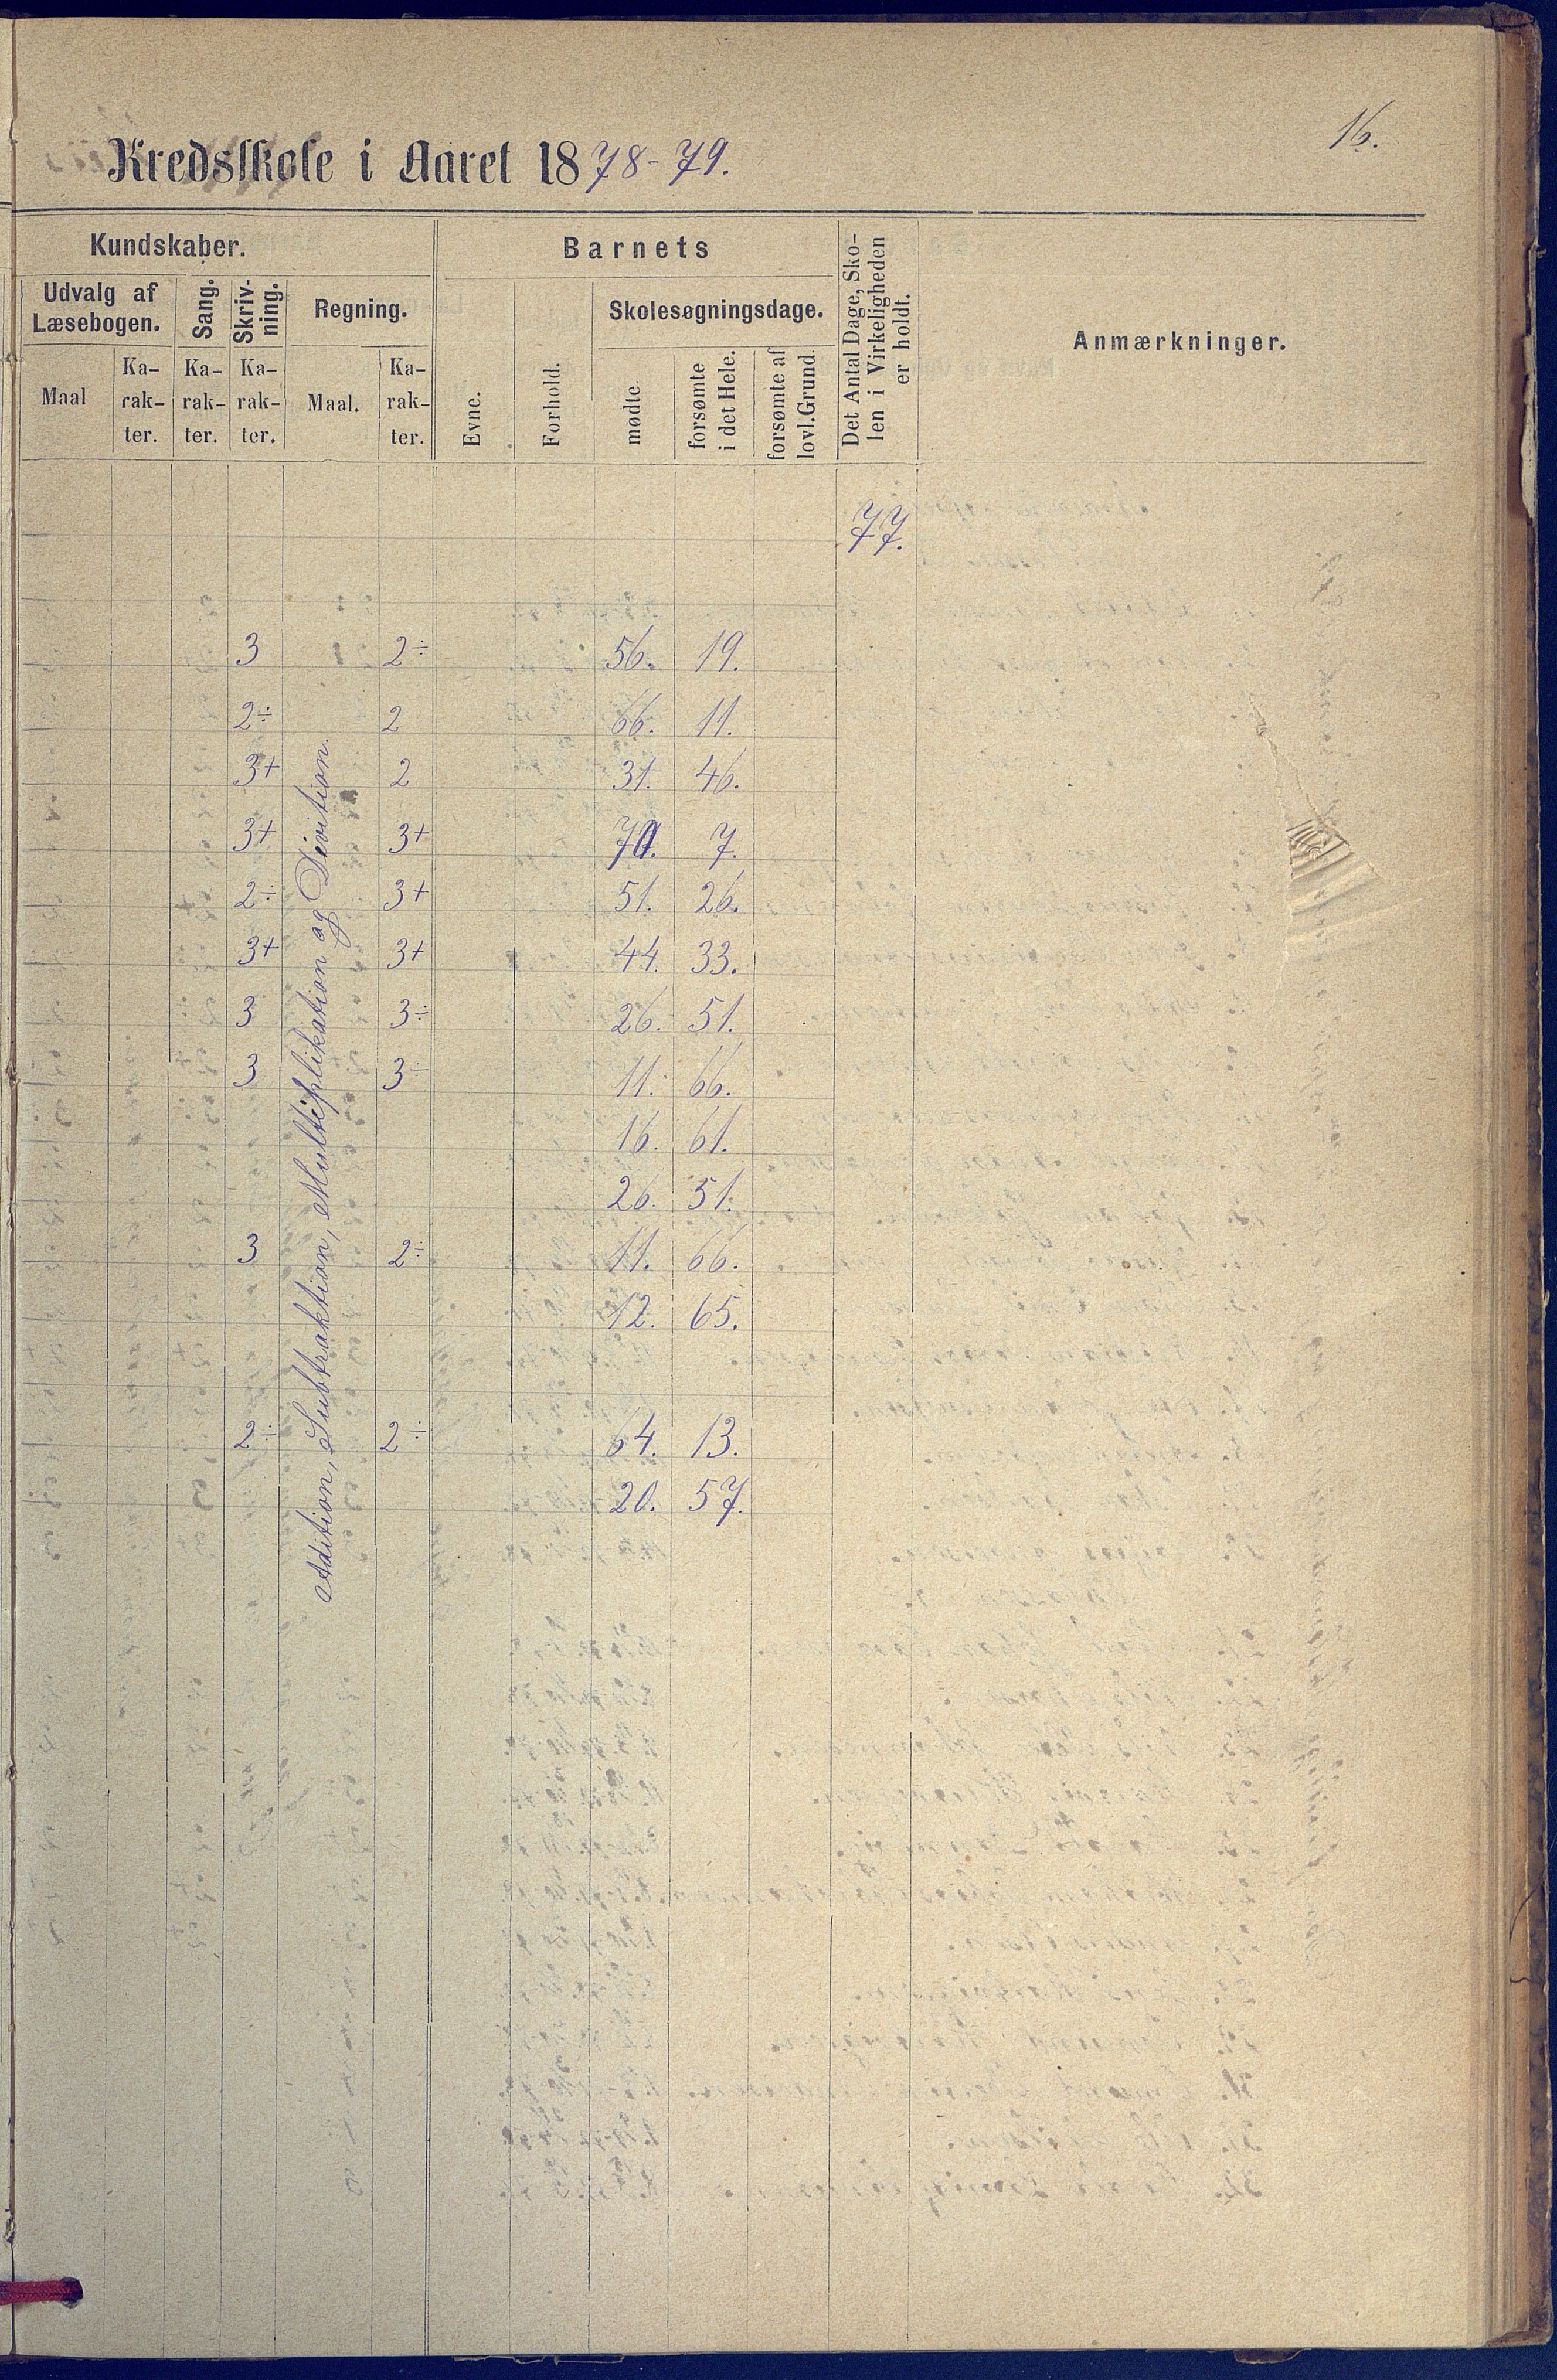 16.
Kredsskole i Aaret 1878-79.
Kundskaber.
Barnets
Det Antal Dage, Sko-
len i Virkeligheden
er holdt.
Anmærkninger.
Udvalg af
Læsebogen.
Sang.
Skriv-
ning.
Regning.
Evne.
Forhold.
Skolesøgningsdage.
Maal
Ka-
rak-
ter.
Ka-
rak-
ter.
Ka-
rak-
ter.
Maal.
Ka-
rak-
ter.
mødte
forsømte
i det Hele.
forsømte af
lovl. Grund.
77.
Adition, Subtraktion, Multiplikation og Divition.
3 2÷ 56. 19.
2÷ 2 66. 11.
3+ 2 31. 46.
3+ 3+ 70. 7.
2÷ 3+ 51. 26.
3+ 3+ 44. 33.
3 3÷ 26. 51.
3 3÷ 11. 66.
16. 61.
26. 51.
3 2÷ 11. 66.
12. 65.
2÷ 2÷ 64. 13.
20. 57.